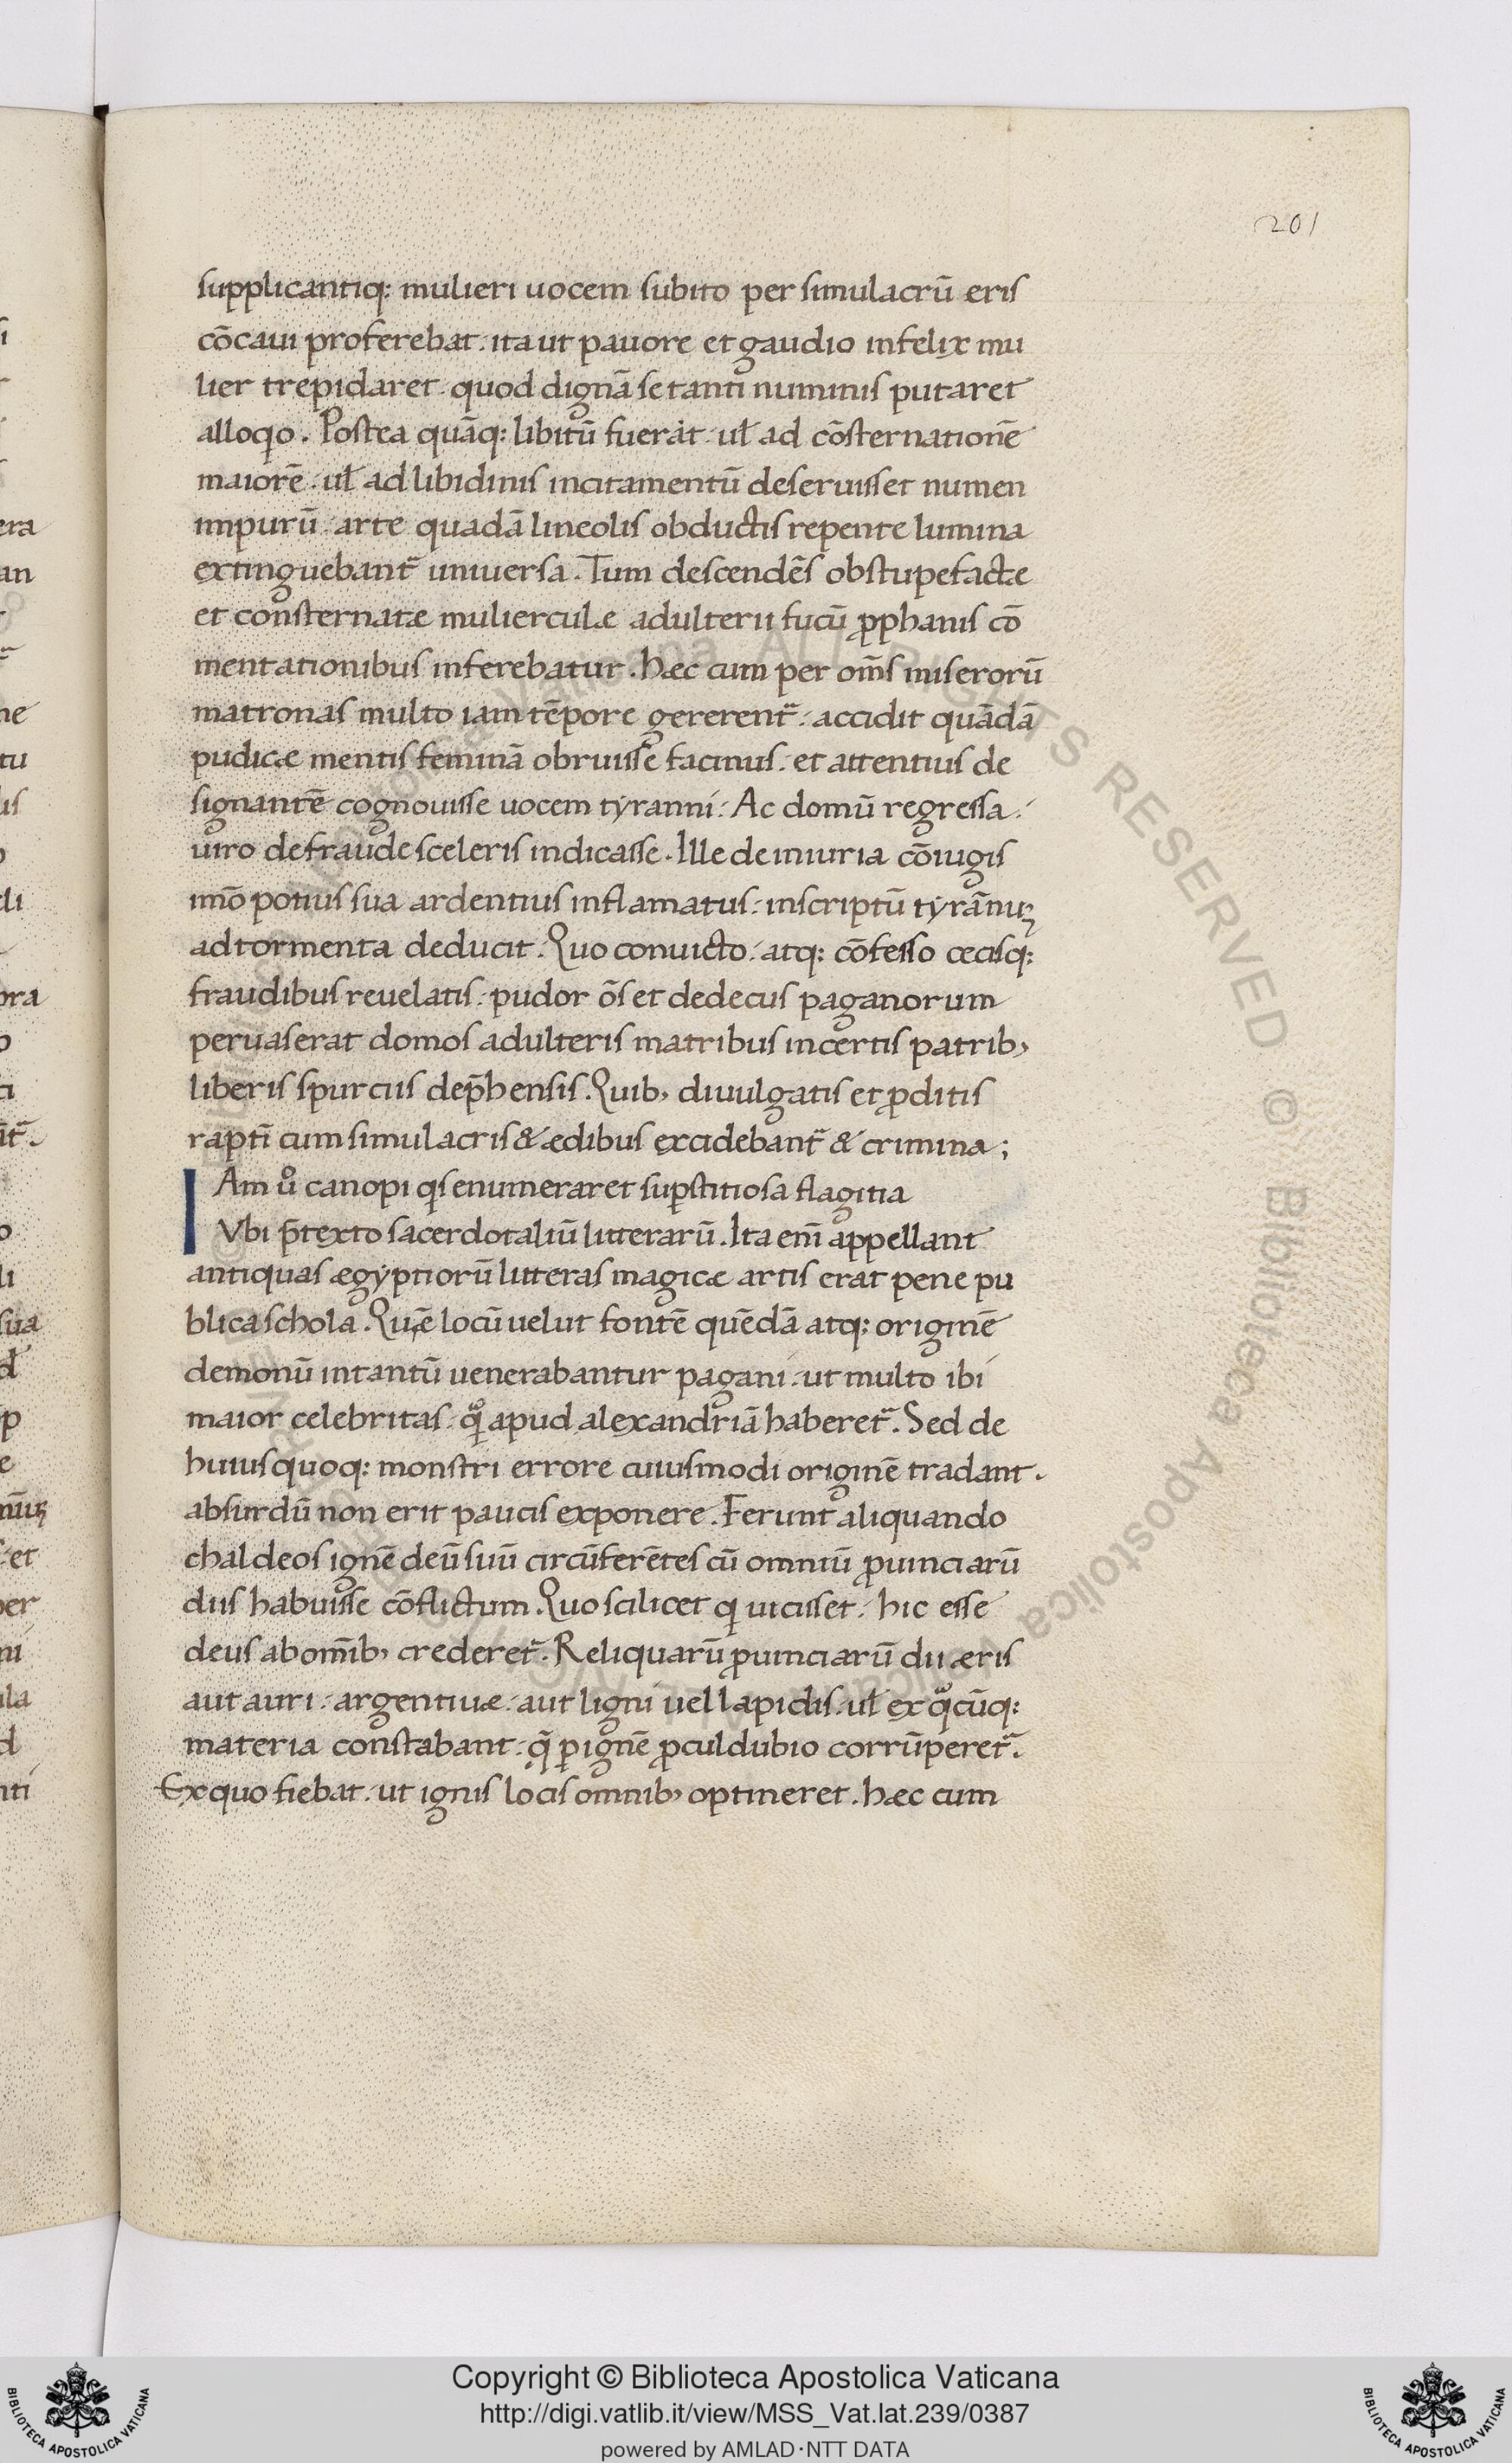 201
supplicantiq: mulieri uocem subito per simulacrũ eris
cõcaui proferebat. ita ut pauore et gaudio infelix mu
lier trepidaret. quod dignã se tanti numinis putaret
alloqio. Postea quãq: libitũ fuerat. ul̃ ad cõsternationẽ
maiorẽ. ul̃ ad libidinis incitamentũ deseruisset numen
impurũ. arte quadã lineolis obductis repente lumina
extinguebant᷑ uniuersa. Tum descendẽs obstupefactæ
et consternatæ mulierculæ adulterii fucũ ꝓphanis cõ
mentationibus inferebatur. hæc cum per om̃s miserorũ
matronas multo iam tẽpore gererent᷑. accidit quãdã
pudicæ mentis feminã obruisse facinus. et attentius de
signantẽ cognouisse uocem tyranni. Ac domũ regressa.
uiro de fraude sceleris indicasse. Ille de iniuria cõiugis
imõ potius sua ardentius inflamatus. inscriptũ tyrãnuȝ
ad tormenta deducit. Quo conuicto. atq: cõfesso cecisq:
fraudibus reuelatis. pudor õs et dedecus paganorum
peruaserat domos adulteris matribus incertis patrib,
liberis spurciis dep̃hensis. Quib, diuulgatis et ꝓditis
rapti cum simulacris & ædibus excidebant᷑ & crimina;
IAm uͦ canopi qis enumeraret suꝑstitiosa flagitia
Vbi p̃texto sacerdotaliũ litterarũ. Ita eni᷑ appellant
antiquas ægyptiorũ litteras magicæ artis erat pene pu
blica schola. Quẽ locũ uelut fontẽ quẽdã atq: originẽ
demonũ in tantũ uenerabantur pagani. ut multo ibi
maior celebritas. qͣ̃ apud alexandriã haberet᷑. Sed de
huius quoq: monstri errore cuiusmodi originẽ tradant.
absurdũ non erit paucis exponere. Ferunt aliquando
chaldeos ignẽ deũ suũ circũferẽtes cũ omniũ ꝓuinciarũ
diis habuisse cõflictum. Quo scilicet qi uicisset. hic esse
deus ab om̃ib, crederet᷑. Reliquarũ ꝓuinciarũ dii æris
aut auri. argentiuæ. aut ligni uel lapidis. ul̃ ex qͣcũq:
materia constabant. q̃ ꝑ ignẽ ꝓculdubio corrũperet᷑.
Ex quo fiebat. ut ignis locis omnib, optineret. hæc cum
Copyright © Biblioteca Apostolica Vaticana
http://digi.vatlib.it/view/MSS_Vat.lat.239/0387
powered by AMLAD·NTT DATA